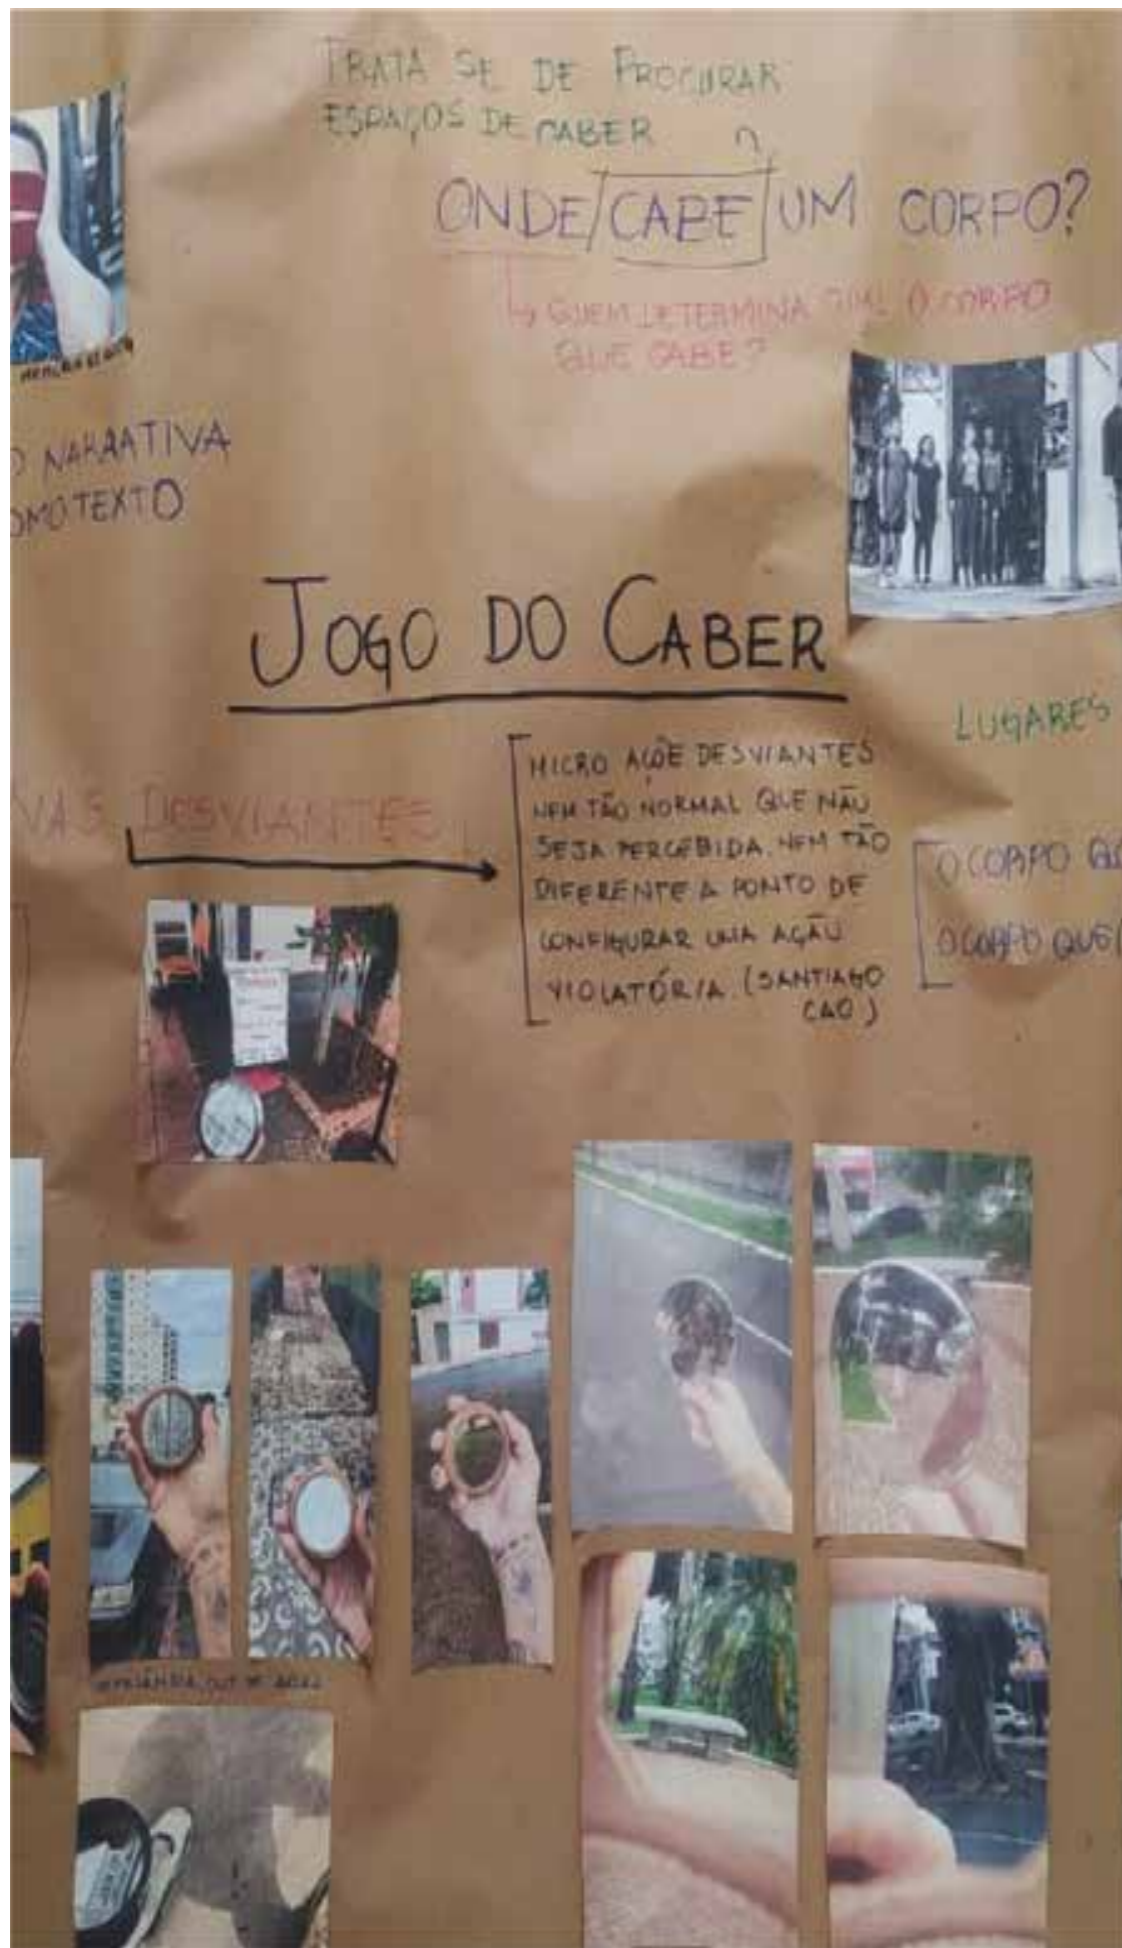 TRATA SE DE PROCURAR
ESPAÇOS DE CABER
ONDE/CABE/UM CORPO?
↳ QUEM DETERMINA QUAL O CORPO
QUE CABE?
NARRATIVA
OMO TEXTO
JOGO DO CABER
LUGARES
VAS DESVIANTES
MICRO AÇÕE DESVIANTES
NEM TÃO NORMAL QUE NÃO
SEJA PERCEBIDA. NEM TÃO
DIFERENTE A PONTO DE
CONFIGURAR UMA AÇÃO
VIOLATÓRIA. (SANTIAGO
CAO)
O CORPO QU
O CORPO QUE